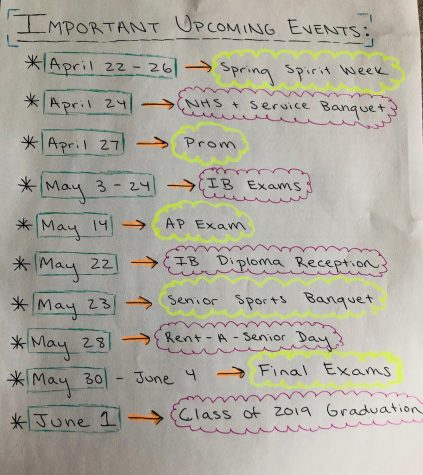 IMPORTANT UPCOMING EVENTS:
* April 22 - 26 → Spring Spirit Week
* April 24 → NHS + Service Banquet
* April 27 → Prom
* May 3 - 24 → IB Exams
* May 14 → AP Exam
* May 22 → IB Diploma Reception
* May 23 → Senior Sports Banquet
* May 28 → Rent - A - Senior Day
* May 30 - June 4 → Final Exams
* June 1 → Class of 2019 Graduation